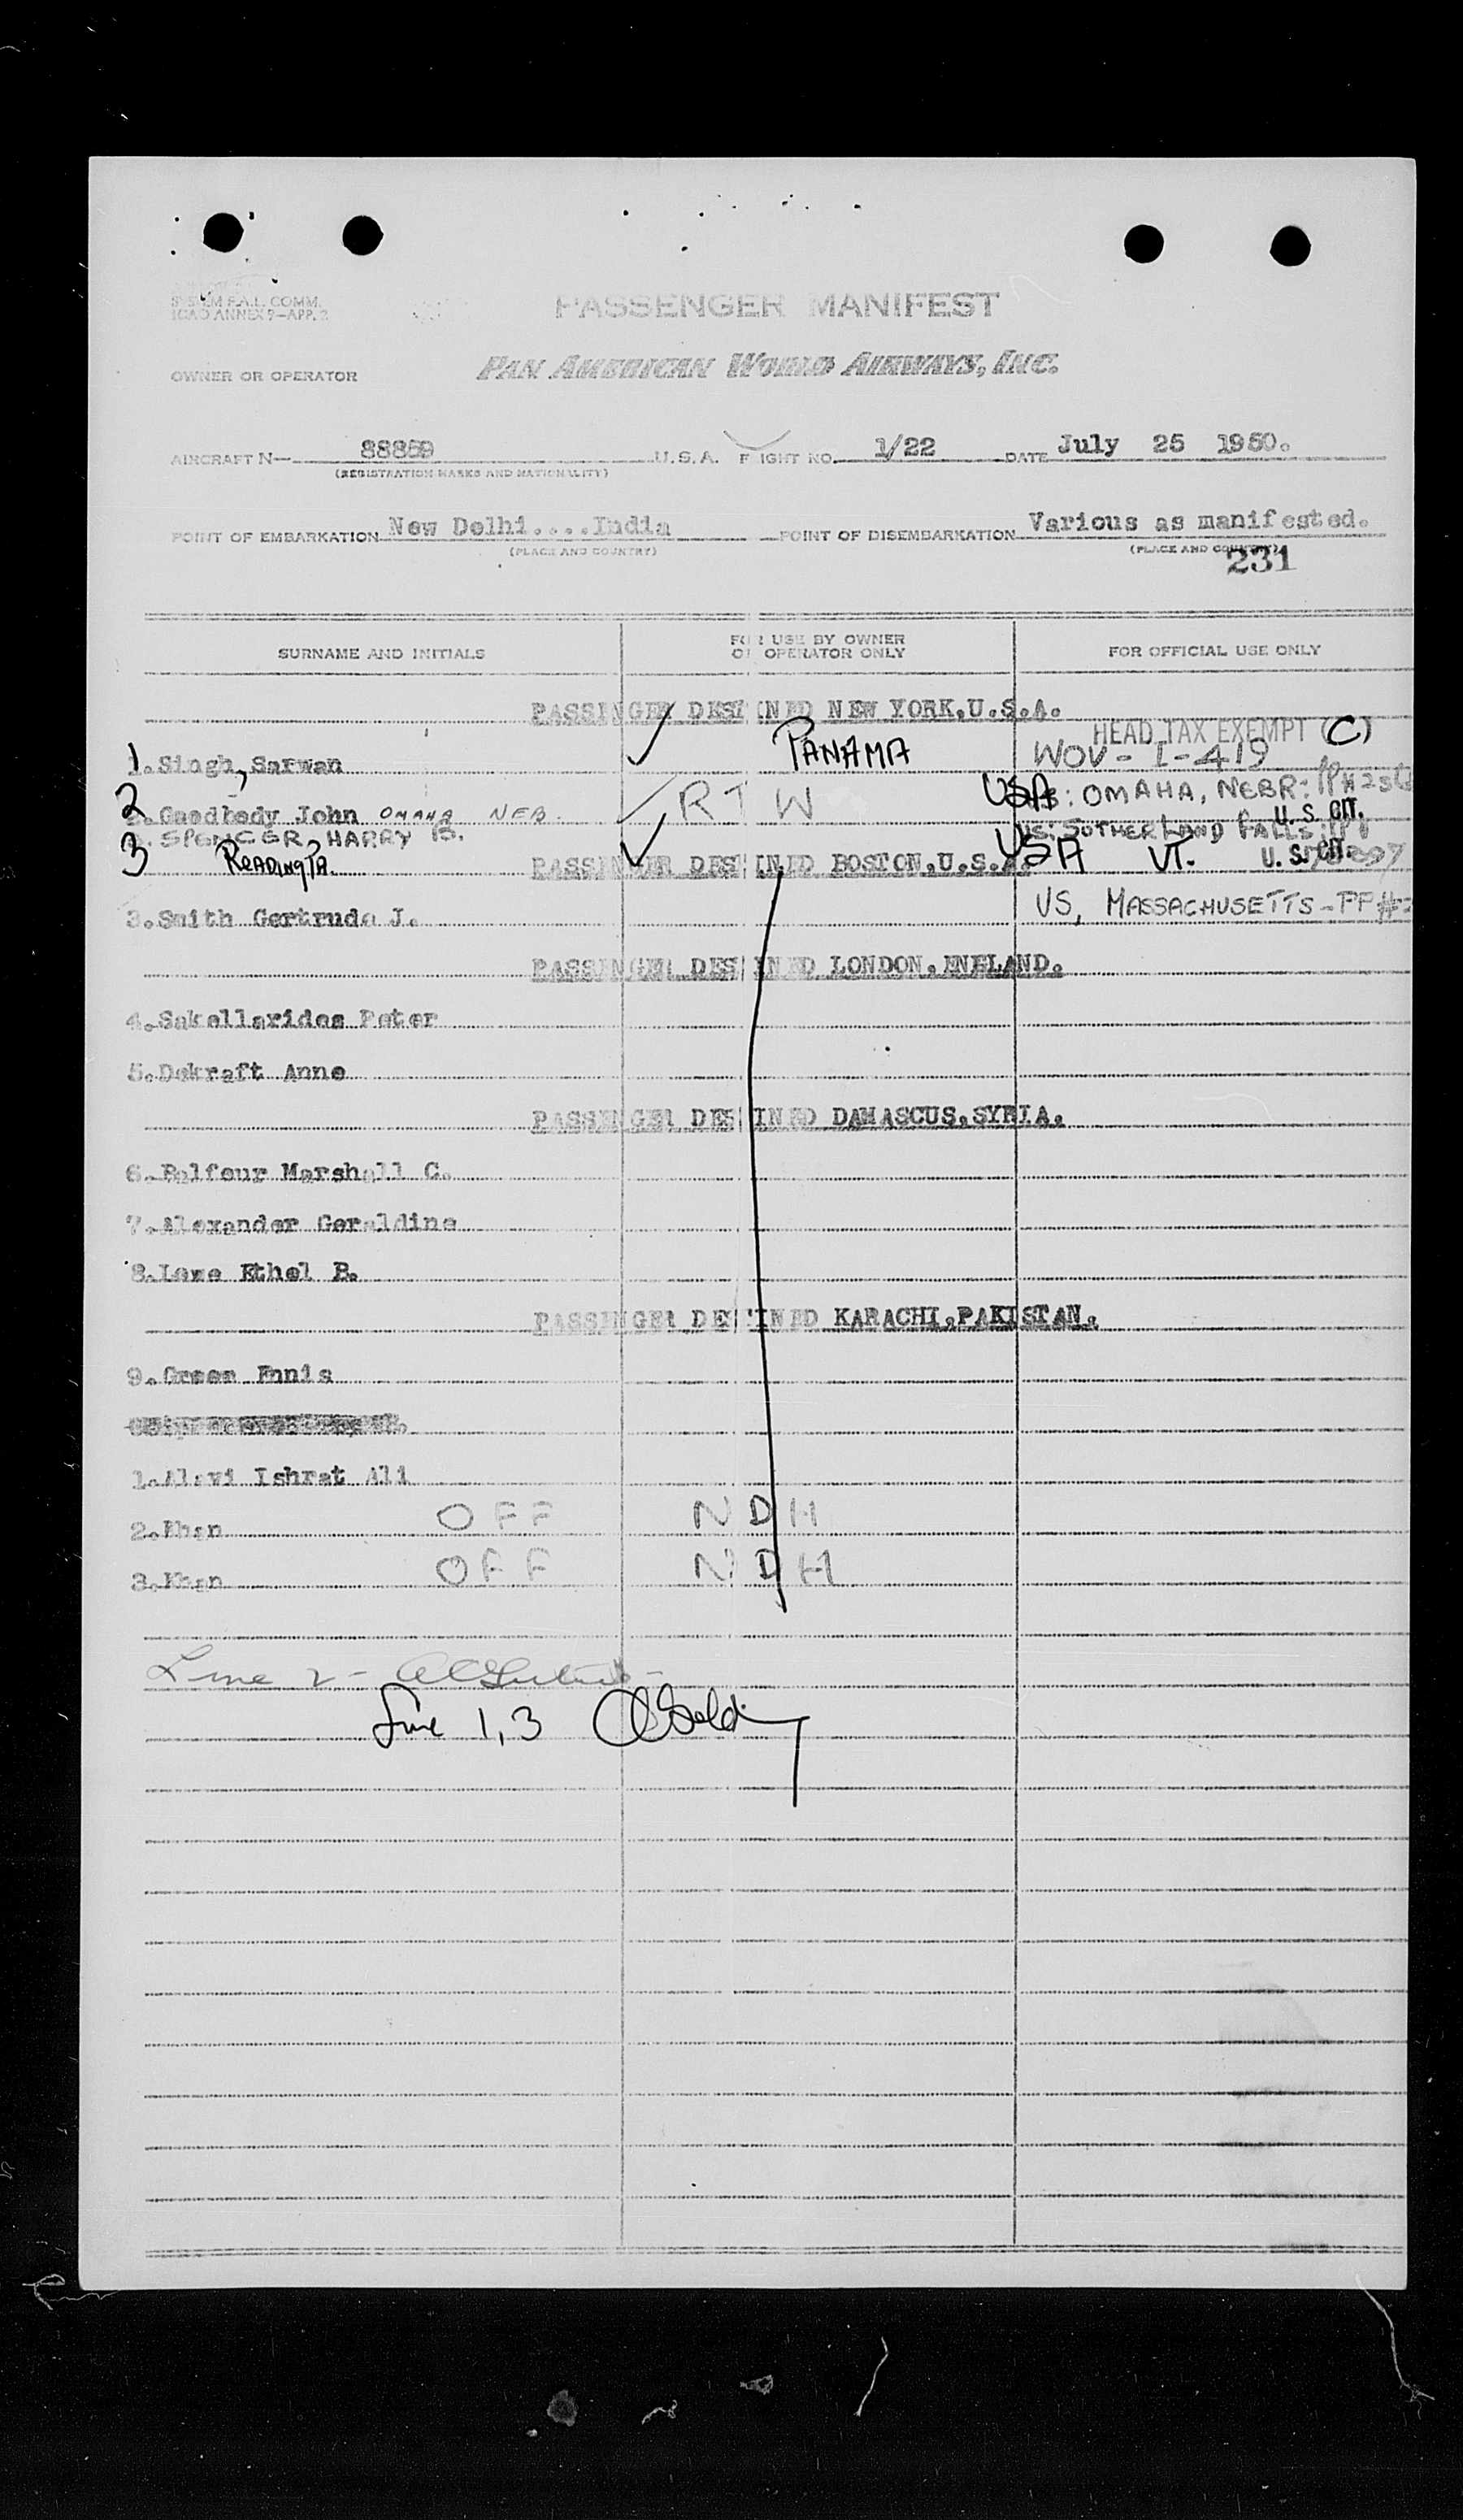 SYSTEM F.A.L. COMM.
ICAO ANNEX 9—APP. 2
PASSENGER MANIFEST
PAN AMERICAN WORLD AIRWAYS, INC.
OWNER OR OPERATOR
AIRCRAFT N— 88859 U.S.A. FLIGHT NO. 1/22 DATE July 25 1950.
(REGISTRATION MARKS AND NATIONALITY)
POINT OF EMBARKATION New Delhi....India POINT OF DISEMBARKATION Various as manifested.
(PLACE AND COUNTRY) (PLACE AND COUNTRY)
231
SURNAME AND INITIALS FOR USE BY OWNER OR OPERATOR ONLY FOR OFFICIAL USE ONLY
PASSINGER DESTINED NEW YORK.U.S.A.
HEAD TAX EXEMPT (C)
1 1.Singh, Sarwan PANAMA WOV-I-419
2 2.Goodbody John OMAHA NEB. RTW USA: OMAHA, NEBR:
U. S. CIT.
SPENCER, HARRY B. US: SUTHERLAND FALLS
3 READING, PA. USA VT. U. S. CIT.
PASSINGER DESTINED BOSTON.U.S.A.
3.Smith Gertrude J. US, MASSACHUSETTS - PP#
PASSINGER DESTINED LONDON.ENBLAND.
4.Sakellarides Peter
5.Dekraft Anne
PASSINGER DESTINED DAMASCUS.SYRIA.
6.Balfour Marshall C.
7.Alexander Geraldine
8.Lowe Ethel B.
PASSINGER DESTINED KARACHI.PAKISTAN.
9.Green Ennis
1.Alavi Ishrat Ali
2.Khan OFF NDH
3.Khan OFF NDH
Line 2 -
Line 1, 3